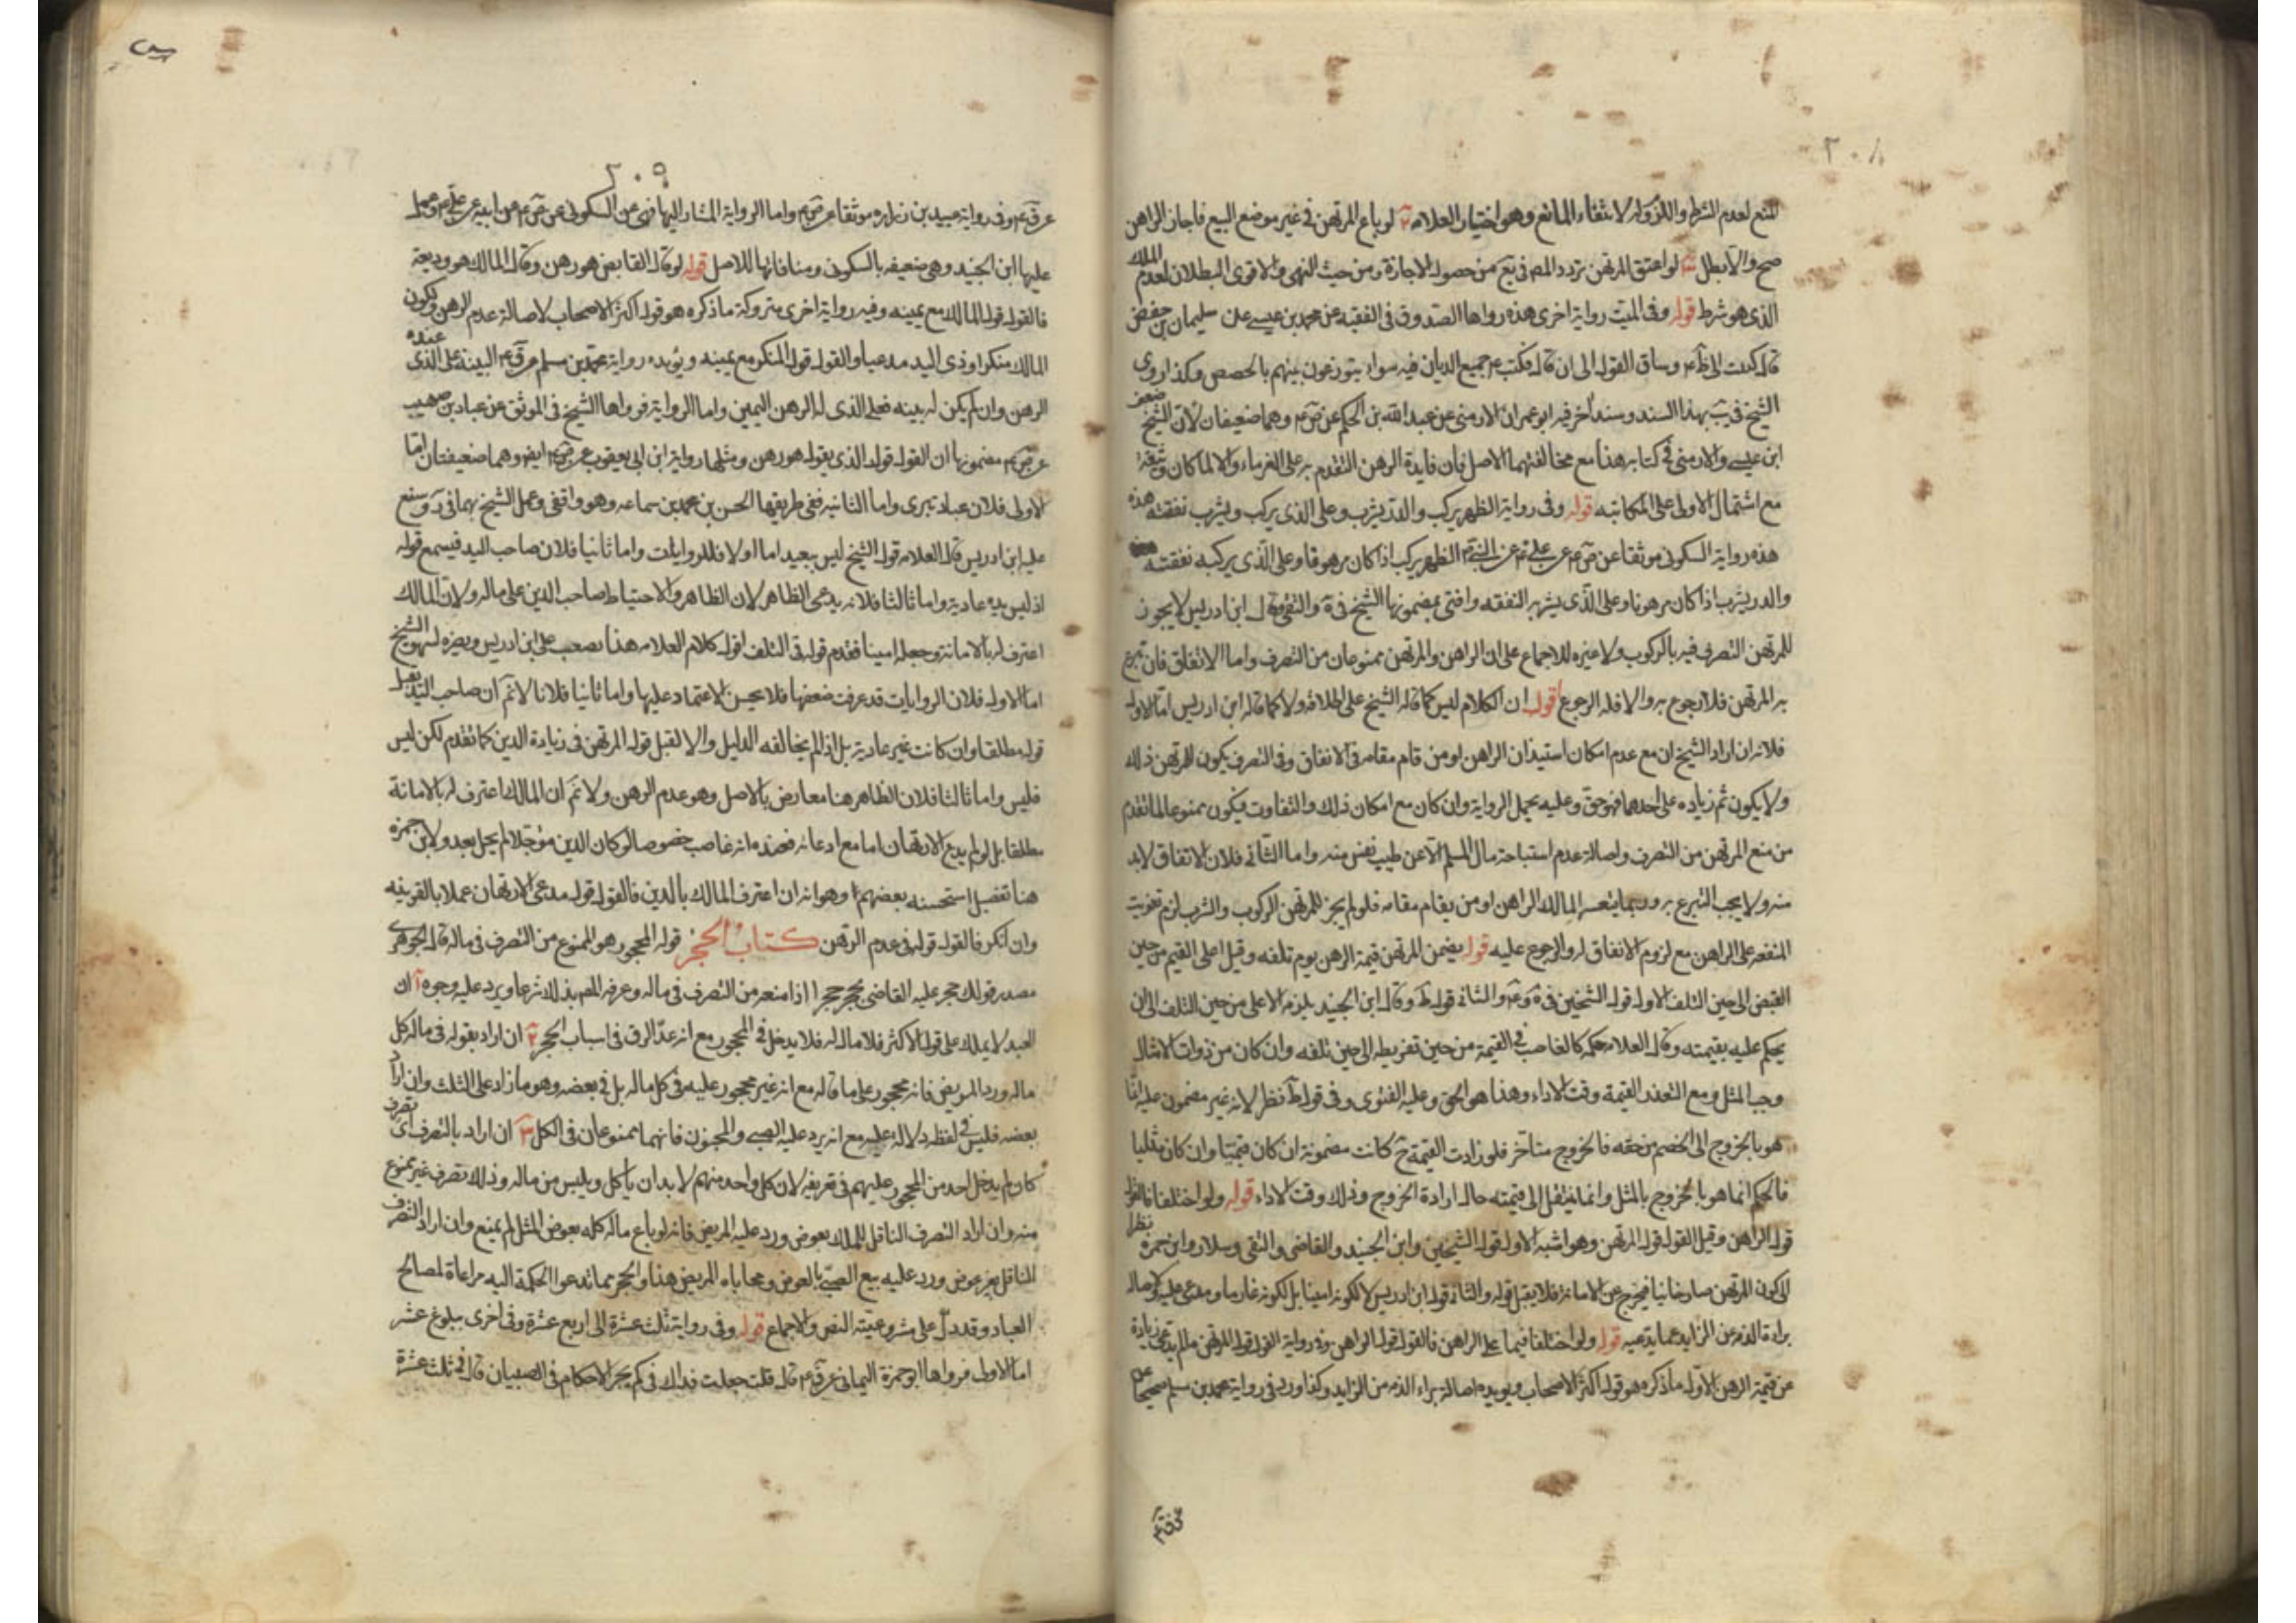 ٢٠٨
للمنع لعدم الشرط واللزوم لانتفاء المانع وهو اختيار العلامه ٢ لو باع المرتهن في غير موضع البيع فاجاز الراهن
صح والا بطل ٣ لو اعتق المرتهن تردد المص في يع من حصول الاجازة ومن حيث النهى والاقوى البطلان لعدم الملك
الذى هو شرط قوله وفى الميت رواية اخرى هذه رواها الصدوق فى الفقيه عن محمد بن عيسى عن سليمان بن حفص
قال كتبت الى وساق القول الى ان قال فكتب ع جميع الديان فيه سواء يتوزعون بينهم بالحصص وكذا روى
الشيخ فى يب بهذا السند وسند اخر فيه ابو عمران الارمنى عن عبد الله بن الحكم عن ص ع وهما ضعيفان لان الشيخ ضعف
ابن عيسى والارمنى فى كتابه هذا مع مخالفتهما الاصل فان فايدة الرهن التقدم به على الغرماء والا لما كان وثيقة
مع اشتمال الاولى على المكاتبه قوله وفى رواية الظهر يركب والدر يشرب وعلى الذى يركب ويشرب نفقته هذه
هذه رواية السكونى موثقا عن ص ع عن على ع عن النبى الظهر يركب اذا كان مرهونا وعلى الذى يركبه نفقته
والدر يشرب اذا كان مرهونا وعلى الذى يشربه النفقه وافتى بمضمونها الشيخ فى ية والتقى وقال ابن ادريس لا يجوز
للمرتهن التصرف فيه بالركوب ولا غيره للاجماع على ان الراهن والمرتهن ممنوعان من التصرف واما الانفاق فان تبرع
به المرتهن فلا رجوع به والا فله الرجوع اقول ان الكلام ليس كما قاله الشيخ على اطلاقه ولا كما قاله ابن ادريس اما الاول
فلانه ان اراد الشيخ ان مع عدم امكان استيذان الراهن او من قام مقامه فى الانفاق وفى التصرف يكون للمرتهن ذلك
ولا يكون ثم زياده على احدهما فهو حق وعليه يحمل الرواية وان كان مع امكان ذلك والتفاوت فيكون ممنوعا لما تقدم
من منع المرتهن من التصرف ولاصالة عدم استباحة مال المسلم الا عن طيب نفس منه واما الثانى فلان الانفاق لابد
منه ولا يجب التبرع به وربما يتعسر المالك الراهن او من يقام مقامه فلو لم يجز للمرتهن الركوب والشرب لزم تفويت
المنفعه على الراهن مع لزوم الانفاق له والرجوع عليه قوله يضمن المرتهن قيمة الرهن يوم تلفه وقيل اعلى القيم من حين
القبض الى حين التلف الاول قول الشيخين فى ية و عه والثانى قول ط وقال ابن الجنيد يلزمه الاعلى من حين التلف الى ان
يحكم عليه بقيمته وقال العلامه حكمه كالغاصب فى القيمة من حين تفريطه الى حين تلفه وان كان من ذوات الامثال
وجب المثل ومع التعذر القيمة وقت الاداء وهذا هو الحق وعليه الفتوى وفى قول ط نظر لانه غير مضمون عليه انما
هو بالخروج الى الخصم من حقه فالخروج متاخر فلو زادت القيمة ح كانت مضمونة ان كان قيميا وان كان مثليا
فالحكم انما هو بالخروج بالمثل وانما ينتقل الى قيمته حال ارادة الخروج وذلك وقت الاداء قوله ولو اختلفا فالقول
قول الراهن وقيل القول قول المرتهن وهو اشبه الاول قول الشيخين وابن الجنيد والقاضى والتقى وسلار وابن حمزه نظرا
الى كون المرتهن صار خائنا فيخرج عن الامانة فلا يقبل قوله والثانى قول ابن ادريس لا لكونه امينا بل لكونه غارما ومدعى عليه ولاصالة
براءة الذمه عن الزايد عما يدعيه قوله ولو اختلفا فيما على الراهن فالقول قول الراهن وفى رواية القول قول المرتهن ما لم يدعى زيادة
عن قيمة الرهن الاول ما ذكره هو قول اكثر الاصحاب ويؤيده اصالة براءة الذمه من الزايد وكذا ورد فى رواية محمد بن مسلم صحيحا عن
٢٠٩
عن ق ع وفى رواية عبيد بن زراره موثقا عن ص ع واما الرواية المشار اليها فهى عن السكونى عن ص ع عن ابيه عن على ع وعمل
عليها ابن الجنيد وهى ضعيفه بالسكونى ومنافاتها للاصل قوله لو قال القابض هو رهن وقال المالك هو وديعة
فالقول قول المالك مع يمينه وفيه رواية اخرى متروكة ما ذكره هو قول اكثر الاصحاب لاصالة عدم الرهن ولكون
المالك منكرا وذى اليد مدعيا والقول قول المنكر مع يمينه ويؤيده رواية محمد بن مسلم عن ق ع البينة على الذى عنده
الرهن وان لم يكن له بينه فعلى الذى له الرهن اليمين واما الرواية فرواها الشيخ فى الموثق عن عباد بن صهيب
عن ص ع مضمونها ان القول قول الذى يقول هو رهن ومثلها رواية ابن ابى يعفور عن ص ع ايضا وهما ضعيفتان اما
الاولى فلان عباد تبرى واما الثانيه ففى طريقها الحسن بن محمد بن سماعه وهو واقفى وعمل الشيخ بهما فى ر ومنع
عليه ابن ادريس قال العلامه قول الشيخ ليس ببعيد اما اولا فللروايات واما ثانيا فلان صاحب اليد فيسمع قوله
اذ ليس يده عادية واما ثالثا فلانه يدعى الظاهر لان الظاهر والاحتياط صاحب الدين على ماله ولان المالك
اعترف له بالامانة وجعله امينا فقدم قوله فى التلف اقول كلام العلامه هذا تصعب على ابن ادريس ونصره لـ الشيخ
اما الاول فلان الروايات قد عرفت ضعفها فلا يحسن الاعتماد عليها واما ثانيا فلانا لا نم ان صاحب اليد يقبل
قوله مطلقا وان كانت غير عادية بل اذا لم يخالفه الدليل والا لقبل قول المرتهن فى زيادة الدين كما تقدم لكن ليس
فليس واما ثالثا فلان الظاهر هنا معارض بالاصل وهو عدم الرهن ولا نم ان المالك اعترف له بالامانة
مطلقا بل لو لم يدع الارتهان اما مع ادعائه فعنده انه غاصب خصوصا لو كان الدين مؤجلا لم يحل بعد ولابن حمزه
هنا تفصيل استحسنه بعضهم وهو انه ان اعترف المالك بالدين فالقول قول مدعى الارتهان عملا بالقرينه
وان انكر فالقول قوله فى عدم الرهن كتاب الحجر قوله المحجور هو الممنوع من التصرف فى ماله قال الجوهرى
مصدر قولك حجر عليه القاضى يحجر حجرا اذا منعه من التصرف فى ماله وعرفه المص بذلك شرعا ويرد عليه وجوه ا ان
العبد لا يملك على قول الاكثر فلا مال له فلا يدخل فى المحجور مع انه عد الرق فى اسباب الحجر ٢ ان اراد بقوله فى ماله كل
ماله ورد المريض فانه محجور على ما قاله مع انه غير محجور عليه فى كل ماله بل فى بعضه وهو ما زاد على الثلث وان اراد
بعضه فليس فى لفظه دلالة عليه مع انه يرد عليه الصبى والمجنون فانهما ممنوعان فى الكل ٣ ان اراد بالتصرف اى تصرف
كان لم يدخل احد من المحجور عليهم فى تعريفه لان كل واحد منهم لابد ان ياكل ويلبس من ماله وذلك تصرف غير ممنوع
منه وان اراد التصرف الناقل للملك بعوض ورد عليه المريض فانه لو باع ماله كله بعوض المثل لم يمنع وان اراد التصرف
الناقل بغير عوض ورد عليه بيع الصبى بالعوض ومحاباه المريض هذا والحجر مما تدعوا الحكمة اليه مراعاة لمصالح
العباد وقد دل على مشروعيته النص والاجماع قوله وفى رواية ثلث عشرة الى اربع عشرة وفى اخرى ببلوغ عشر
اما الاولى فرواها ابو حمزة اليمانى عن ق ع قال قلت جعلت فداك فى كم يجر الاحكام فى الصبيان قال فى ثلث عشرة